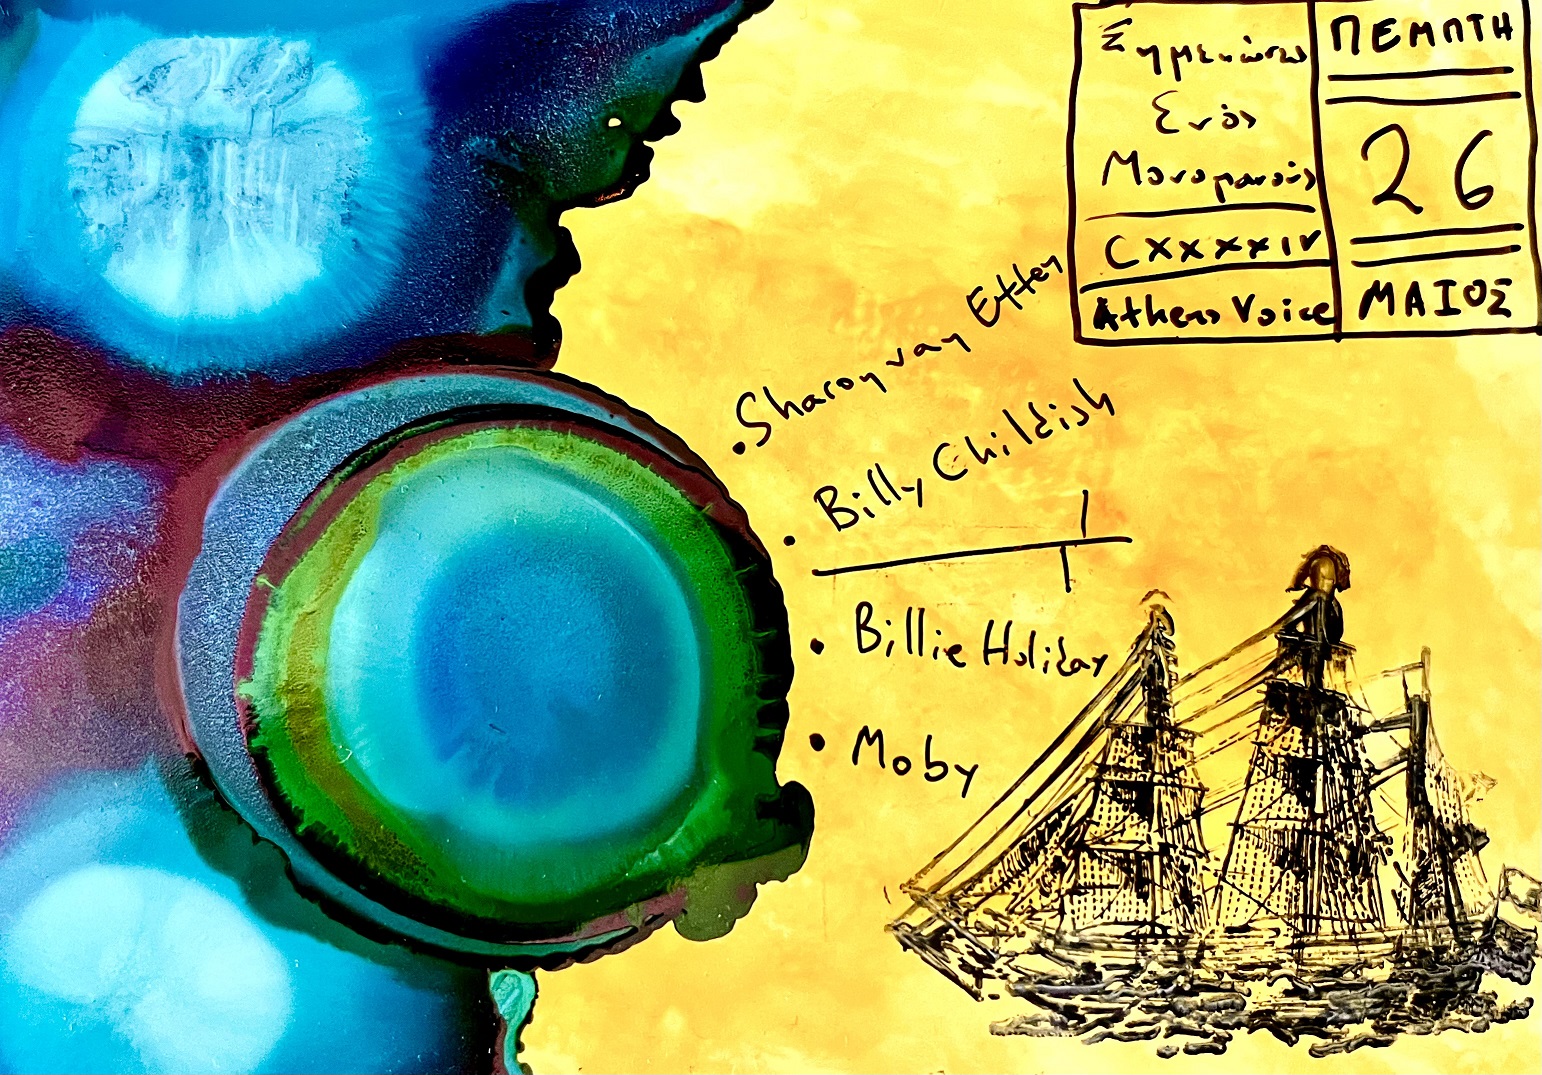 Σημειώσεις
Ενός
Μονομανούς
CXXXXIV
Athens Voice
ΠΕΜΠΤΗ
26
ΜΑΙΟΣ
• Sharon van Etten
• Billy Childish
• Billie Holiday
• Moby